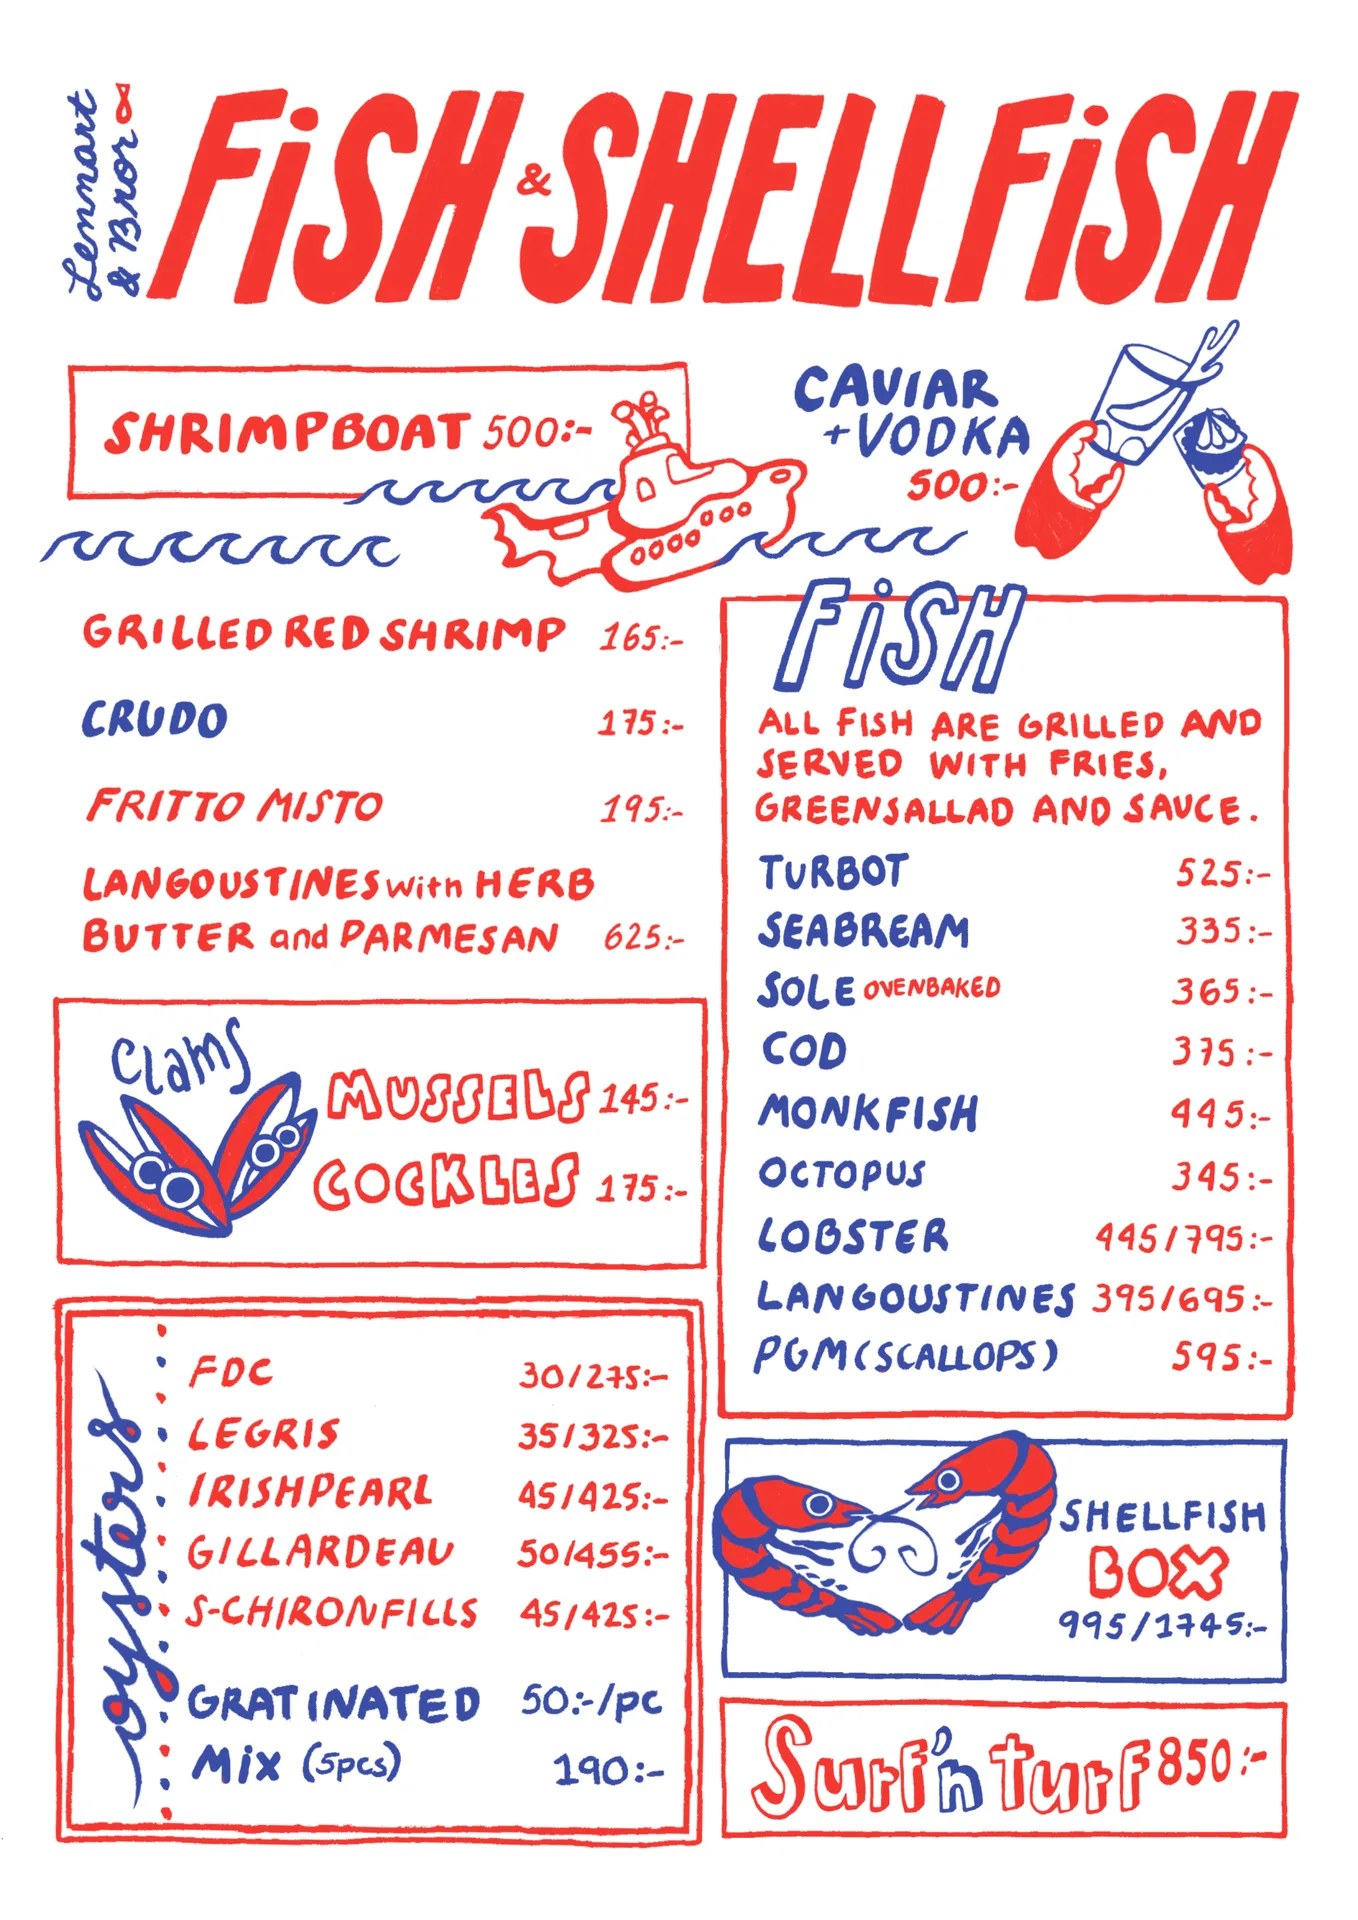 Lennart
& Bror
FiSH & SHELLFiSH
SHRIMPBOAT 500:-
CAVIAR
+VODKA
500:-
GRILLED RED SHRIMP 165:-
CRUDO 175:-
FRITTO MISTO 195:-
LANGOUSTINES with HERB
BUTTER and PARMESAN 625:-
Clams
MUSSELS 145:-
COCKLES 175:-
oysters
FDC 30/275:-
LEGRIS 35/325:-
IRISHPEARL 45/425:-
GILLARDEAU 50/455:-
S-CHIRONFILLS 45/425:-
GRATINATED 50:-/pc
MiX (5pcs) 190:-
FiSH
ALL FISH ARE GRILLED AND
SERVED WITH FRIES,
GREENSALLAD AND SAUCE.
TURBOT 525:-
SEABREAM 335:-
SOLE OVENBAKED 365:-
COD 375:-
MONKFISH 445:-
OCTOPUS 345:-
LOBSTER 445/795:-
LANGOUSTINES 395/695:-
PGM (SCALLOPS) 595:-
SHELLFISH
BOX
995/1745:-
Surf'n turf 850:-